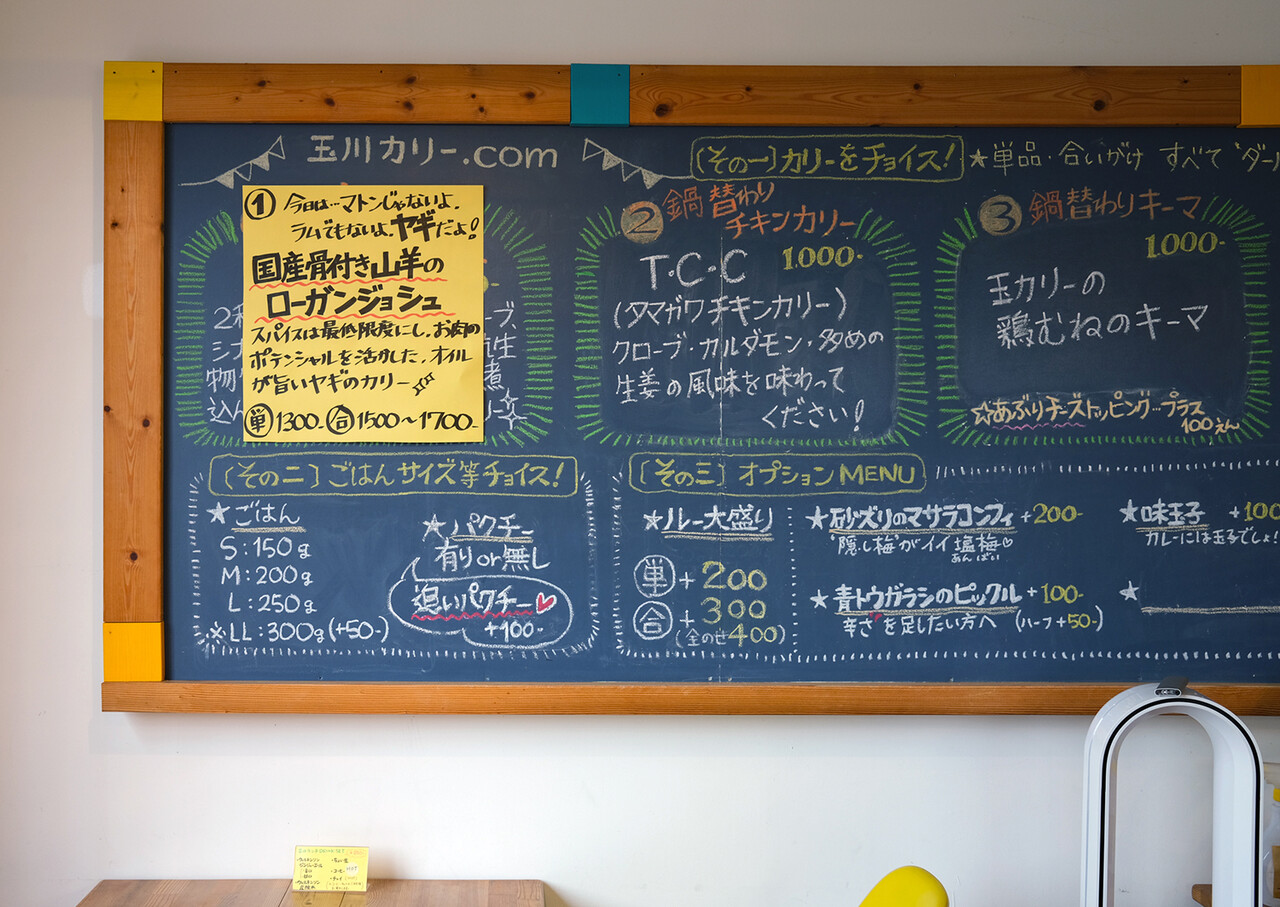 玉川カリー.com
〔その一〕カリーをチョイス!
★単品・合いがけ すべて"ダール
① 今日は…マトンじゃないよ。
ラムでもないよ。ヤギだよ!
国産骨付き山羊の
ローガンジョシュ
スパイスは最低限度にし、お肉の
ポテンシャルを活かした、オイル
が旨いヤギのカリー
単1300- 合1500〜1700-
② 鍋替わり
チキンカリー
1.000-
T・C・C
(タマガワチキンカリー)
クローブ・カルダモン・多めの
生姜の風味を味わって
ください!
③ 鍋替わりキーマ
1.000-
玉カリーの
鶏むねのキーマ
☆あぶりチーズトッピング…プラス
100えん
〔その二〕ごはんサイズ等チョイス!
★ごはん
S:150g
M:200g
L:250g
※LL:300g(+50-)
★パクチー
有りor無し
追いパクチー♥
+100-
〔その三〕オプションMENU
★ルー大盛り
単+200
合+300
(全のせ400)
★砂ズリのマサラコンフィ+200-
"隠し梅"がイイ塩梅♡
あんばい
★青トウガラシのピックル+100-
辛さを足したい方へ (ハーフ+50-)
★味玉子 +100
カレーには玉子でしょ!
★